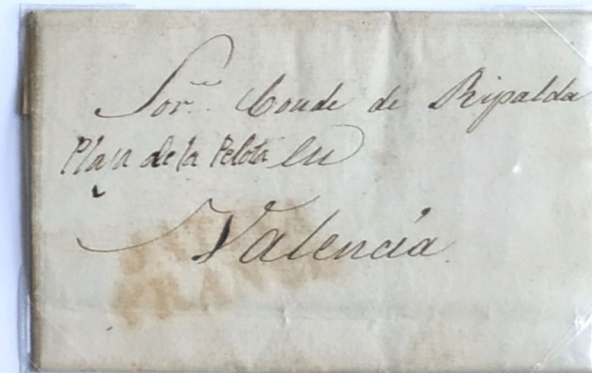 Sor. Conde de Ripalda
Plaza de la Pelota en
Valencia.